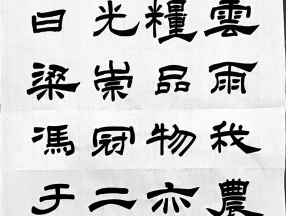 雲雨我農
糧品物亦
光崇冠二
曰梁馮于